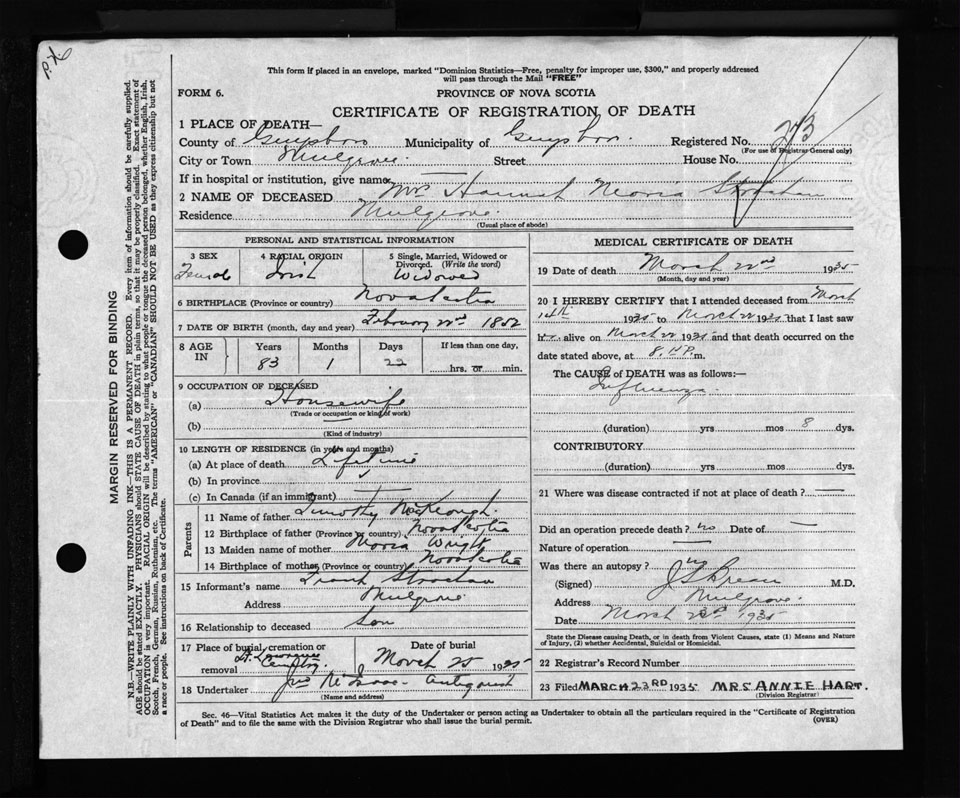 This form if placed in an envelope, marked "Dominion Statistics—Free, penalty for improper use, $300," and properly addressed
will pass through the Mail "FREE"
FORM 6.
PROVINCE OF NOVA SCOTIA
CERTIFICATE OF REGISTRATION OF DEATH
1 PLACE OF DEATH—
County of Guysboro Municipality of Guysboro Registered No. 243
(For use of Registrar General only)
City or Town Mulgrave Street House No.
If in hospital or institution, give name —
2 NAME OF DECEASED Mrs Hannah Maria Strachan
Residence Mulgrave
(Usual place of abode)
PERSONAL AND STATISTICAL INFORMATION
3 SEX
Female
4 RACIAL ORIGIN
Irish
5 Single, Married, Widowed or
Divorced. (Write the word)
Widowed
6 BIRTHPLACE (Province or country) Nova Scotia
7 DATE OF BIRTH (month, day and year) February 22nd 1852
8 AGE IN
Years Months Days If less than one day,
83 1 22 hrs. or min.
9 OCCUPATION OF DECEASED
(a) Housewife
(Trade or occupation or kind of work)
(b)
(Kind of industry)
10 LENGTH OF RESIDENCE (in years and months)
(a) At place of death Lifetime
(b) In province
(c) In Canada (if an immigrant) —
Parents
11 Name of father Timothy McKeough
12 Birthplace of father (Province or country) Nova Scotia
13 Maiden name of mother Maria Wright
14 Birthplace of mother (Province or country) Nova Scotia
15 Informant's name Frank Strachan
Address Mulgrave
16 Relationship to deceased Son
17 Place of burial, cremation or removal
Cemetery
Date of burial
March 25 1935
18 Undertaker Jno McIsaac Antigonish
(Name and address)
MEDICAL CERTIFICATE OF DEATH
19 Date of death March 22nd 1935
(Month, day and year)
20 I HEREBY CERTIFY that I attended deceased from March
14th 1935 to March 22 1935 that I last saw
her alive on March 22 1935 and that death occurred on the
date stated above, at P.m.
The CAUSE of DEATH was as follows:—
Influenza
(duration) yrs mos 8 dys.
CONTRIBUTORY
(duration) yrs mos dys.
21 Where was disease contracted if not at place of death? —
Did an operation precede death? no Date of —
Nature of operation —
Was there an autopsy? no
(Signed) M.D.
Address Mulgrave
Date March 23rd 1935
State the Disease causing Death, or in death from Violent Causes, state (1) Means and Nature
of Injury, (2) whether Accidental, Suicidal or Homicidal.
22 Registrar's Record Number
23 Filed MARCH 23RD 1935 MRS ANNIE HART.
(Division Registrar)
Sec. 46—Vital Statistics Act makes it the duty of the Undertaker or person acting as Undertaker to obtain all the particulars required in the "Certificate of Registration
of Death" and to file the same with the Division Registrar who shall issue the burial permit.
(OVER)
MARGIN RESERVED FOR BINDING
N.B.—WRITE PLAINLY WITH UNFADING INK—THIS IS A PERMANENT RECORD. Every item of information should be carefully supplied.
AGE should be stated EXACTLY. PHYSICIANS should STATE CAUSE OF DEATH in plain terms, so that it may be properly classified. Exact statement of
OCCUPATION is very important. RACIAL ORIGIN will be described by stating to what people or tongue the deceased person belonged, whether English, Irish,
Scotch, French, German, Russian, Ruthenian, etc. The terms "AMERICAN" or "CANADIAN" SHOULD NOT BE USED as they express citizenship but not
a race or people. See instructions on back of Certificate.